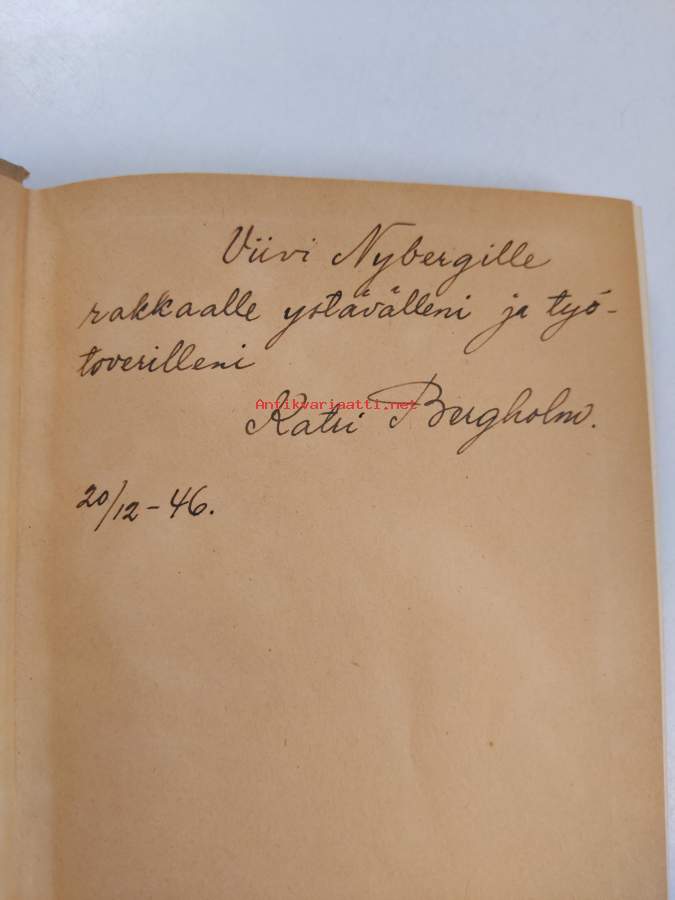 Viivi Nybergille
rakkaalle ystävälleni ja työ-
toverilleni
Antikvariaatti.net
Katri Bergholm.
20/12-46.